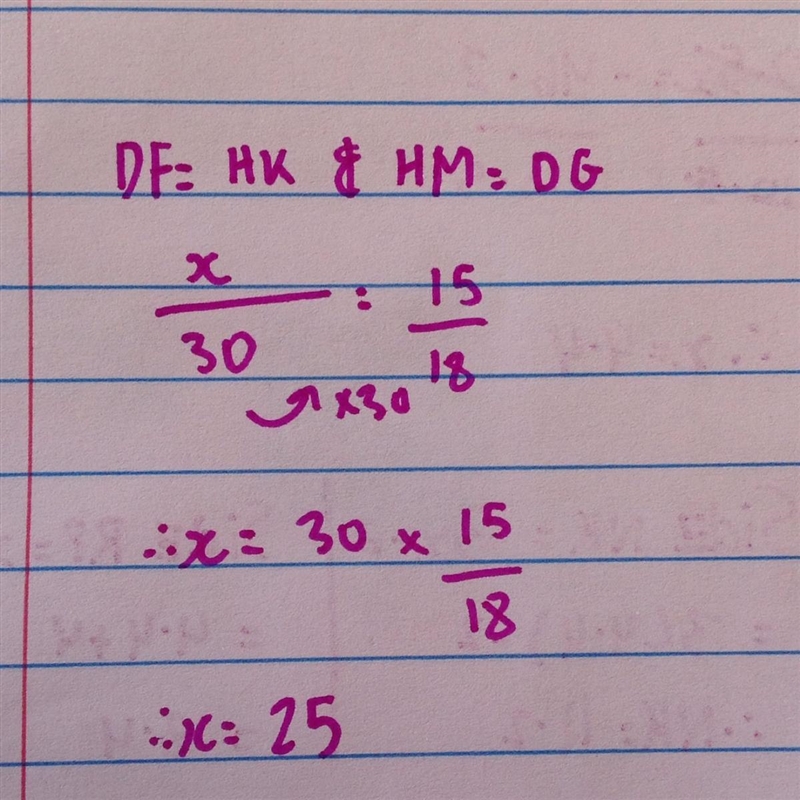 DF = HK & HM = DG
x/30 = 15/18
×30
∴x = 30 × 15/18
∴x = 25